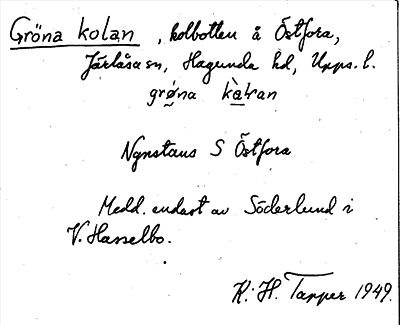 Gröna kolan, kolbotten å Östfora,
Järlåsa sn, Hagunda hd, Upps. l.
grø̀na kàɫan
Nynstans S Östfora
Medd. endast av Söderlund i
V. Hasselbo.
K. H. Tapper 1949.